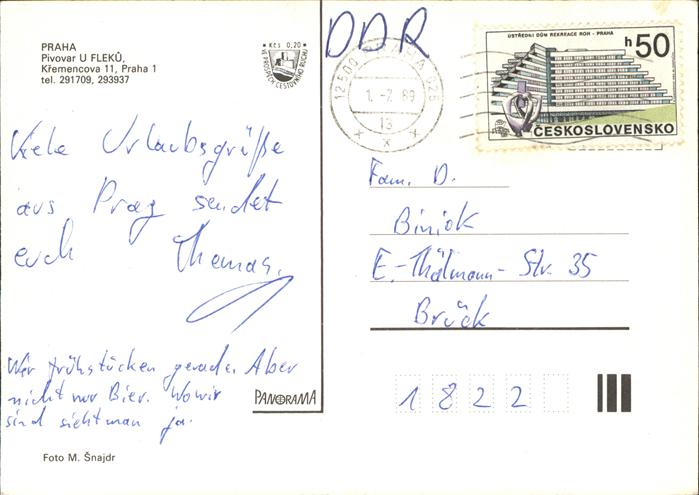 PRAHA
Pivovar U FLEKŮ,
Křemencova 11, Praha 1
tel. 291709, 293937
Kčs 0,20
VE PROSPĚCH CESTOVNÍHO RUCHU
DDR
1.-7. 89
13
ÚSTŘEDNÍ DŮM REKREACE ROH - PRAHA
h50
ČESKOSLOVENSKO
Viele Urlaubsgrüße
aus Prag sendet
euch Thomas.
Wir frühstücken gerade. Aber
nicht nur Bier. Wo wir
sind sieht man ja.
Fam. D.
Biniok
E.-Thälmann-Str. 35
Brück
1822
PANORAMA
Foto M. Šnajdr